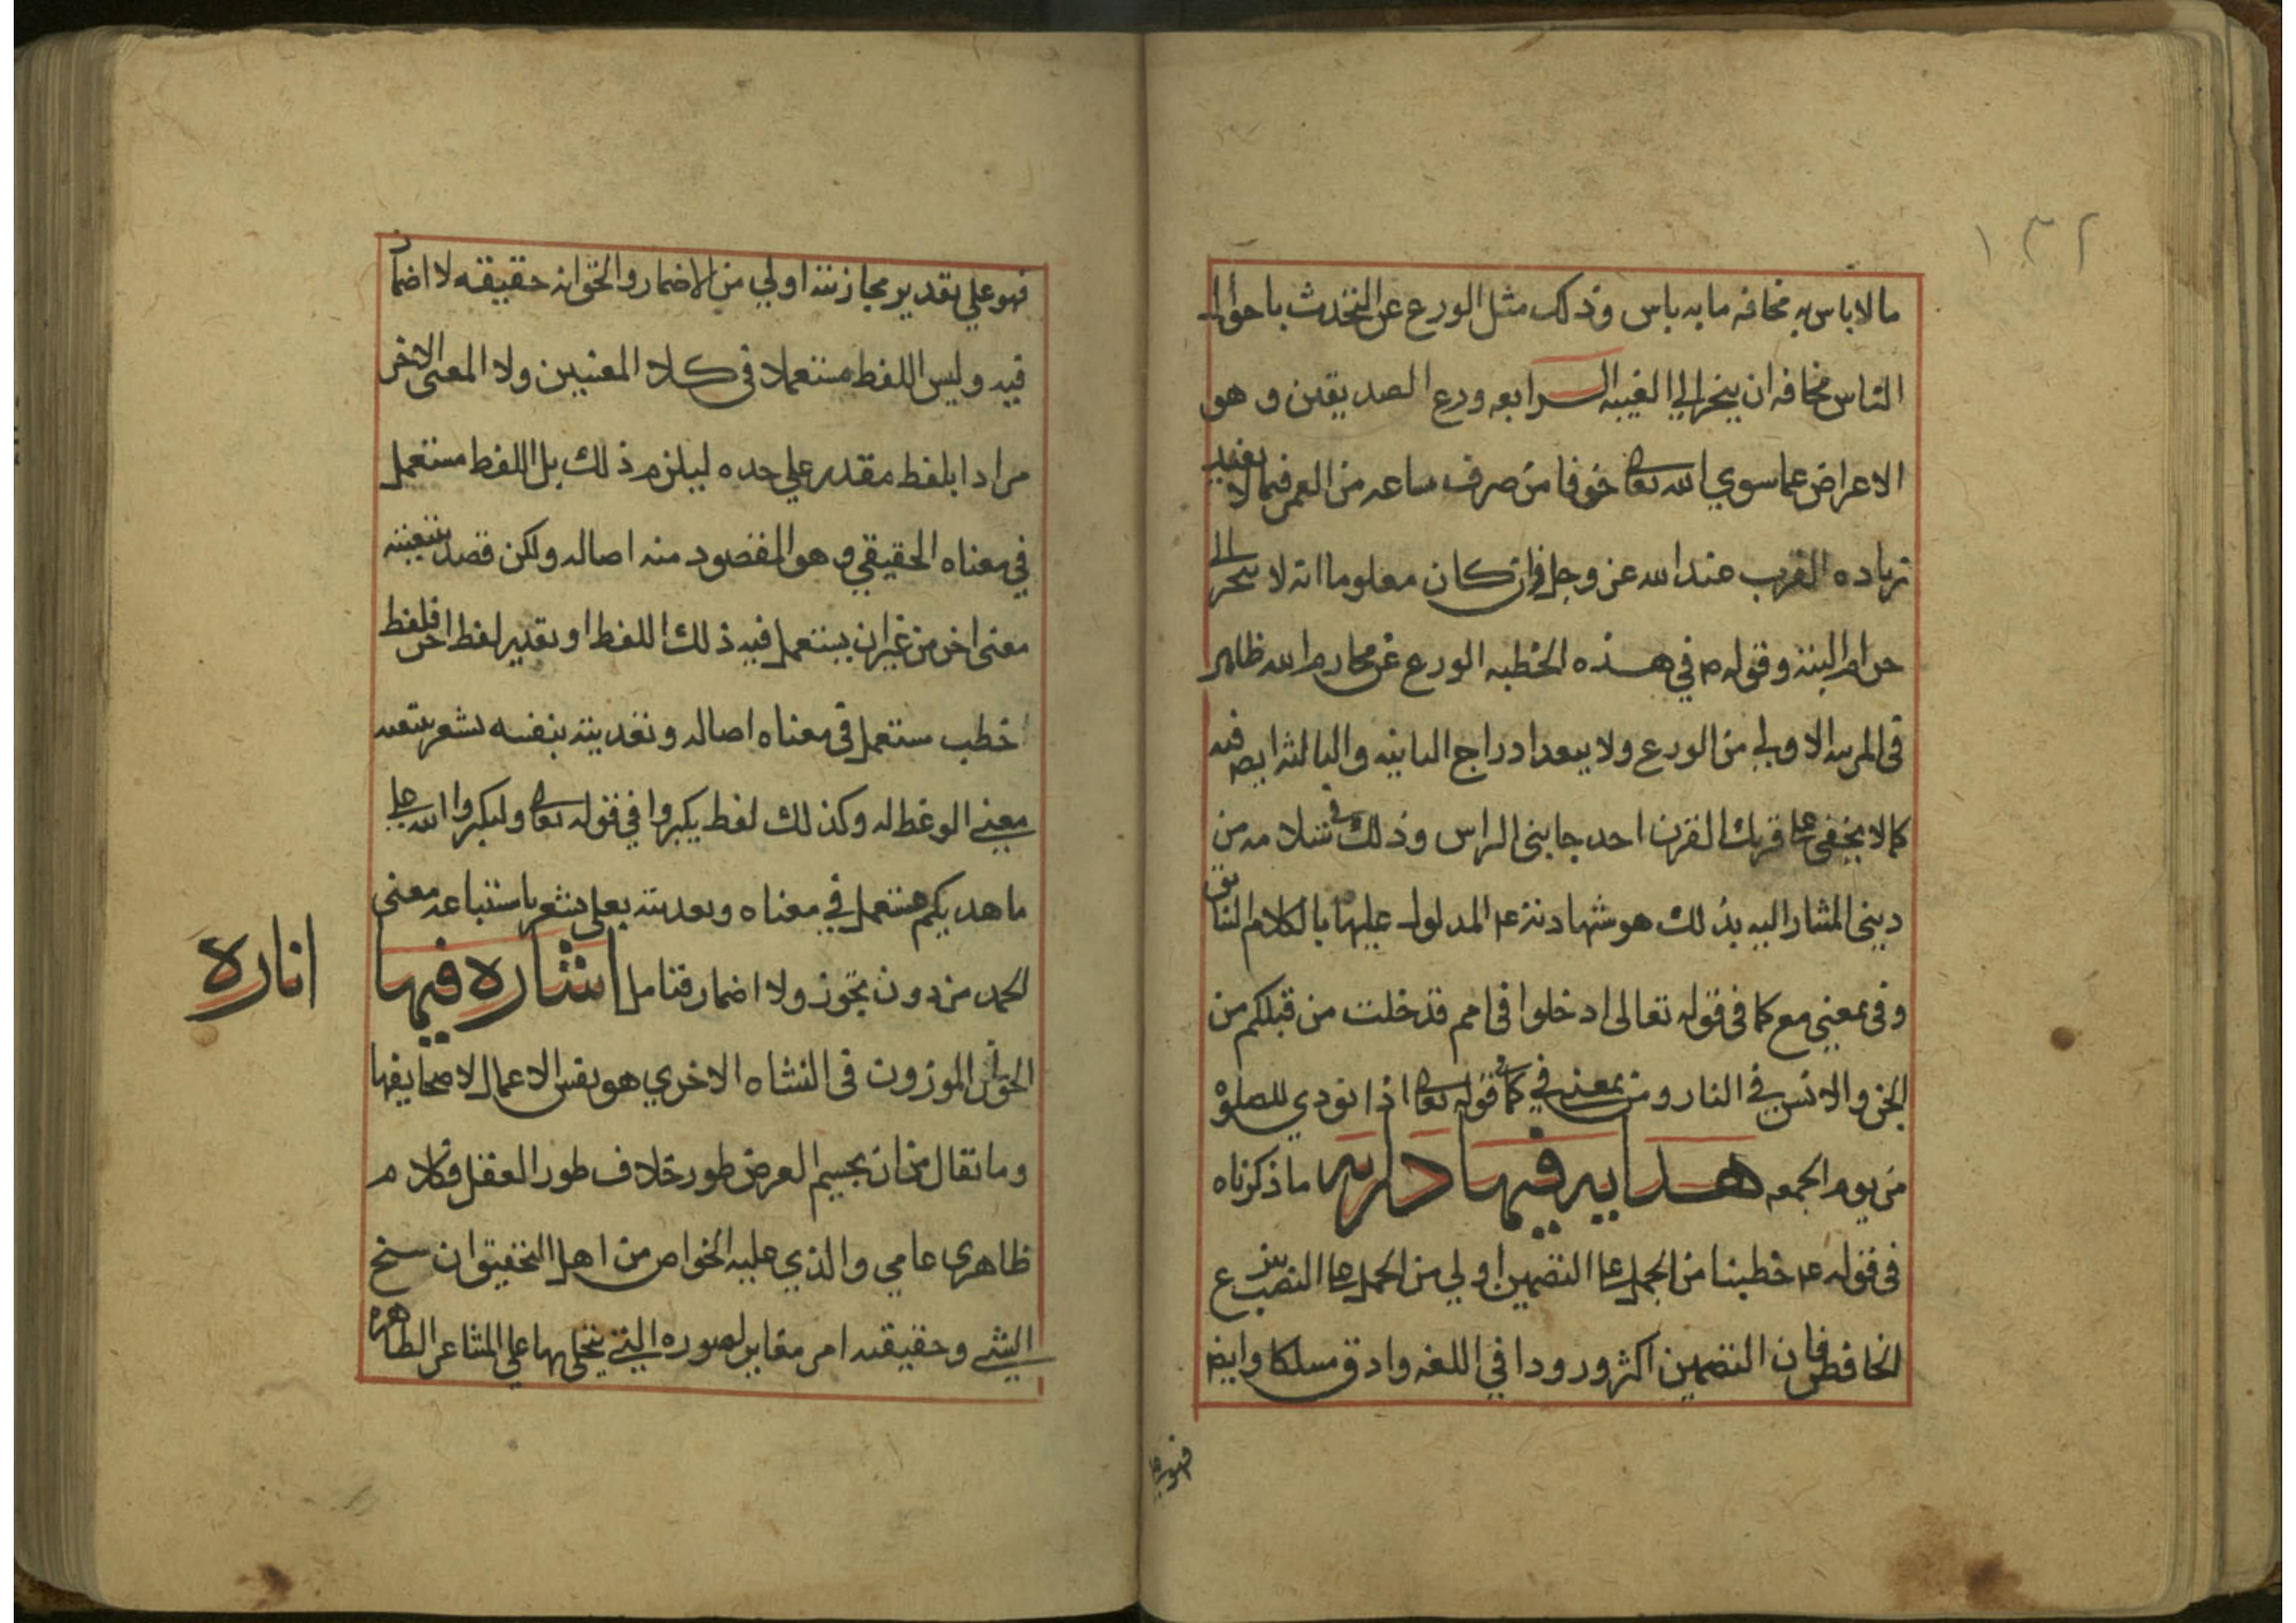 ١٣٢
ما لا باس به مخافه ما به باس وذلك مثل الورع عن التحدث باحوال
الناس مخافه ان ينجر الي الغيبه الرابعه ورع الصديقين و هو
الاعراض عما سوي الله تعا خوفا من صرف ساعه من العمر فيما لا يفيد
زياده القرب عند الله عز وجل وان كان معلوما انه لا ينجر الى
حرام البته وقوله م في هذه الخطبه الورع عن محارم الله ظاهر
في المرتبه الاولي من الورع ولا يبعد ادراج الثانيه والثالثه ايض فيه
كما لا يخفى على قرنك القرن احد جانبى الراس وذلك في سلامه من
دينى المشار اليه بذلك هو شهادته ع المدلول عليها بالكلام السابق
وفى بمعنى مع كما فى قوله تعالى ادخلوا فى امم قد خلت من قبلكم من
الجن والانس فى النار ومن بمعنى في كما في قوله تعا اذا نودي للصلوة
من يوم الجمعه هدايه فيها درايه ما ذكرناه
فى قوله ع خطبنا من الحمل على التضمين اولي من الحمل على النصب بنزع
الخافض فان التضمين اكثر ورودا في اللغه وادق مسلكا وايض
فهو على
فهو علي تقدير مجازيته اولي من الاضمار والحق انه حقيقه لا اضمار
فيه وليس اللفظ مستعملا فى كلا المعنيين ولا المعنى الاخر
مرادا بلفظ مقدر علي حده ليلزم ذلك بل اللفظ مستعمل
في معناه الحقيقي و هو المقصود منه اصاله ولكن قصد بتبعيته
معنى اخر من غير ان يستعمل فيه ذلك اللفظ او تقدير لفظ اخر فلفظ
خطب ستعمل في معناه اصاله وتعديته بنفسه تشعر بتبعيه
معني الوعظ له وكذلك لفظ يكبروا في قوله تعا ولتكبروا الله على
ما هديكم مستعمل في معناه وتعديته بعلى تشعر باستتباعه معنى
الحمد من دون تجوز ولا اضمار فتامل اشاره فيها
اناره
الحق ان الموزون فى النشاه الاخري هو نفس الاعمال لا صحايفها
وما تقال من ان تجسيم العرض طور خلاف طور العقل فكلام
ظاهرى عامي والذي عليه الخواص من اهل التحقيق ان سنخ
الشي وحقيقته امر مغاير لصوره التى يتجلى بها على المشاعر الظاهره